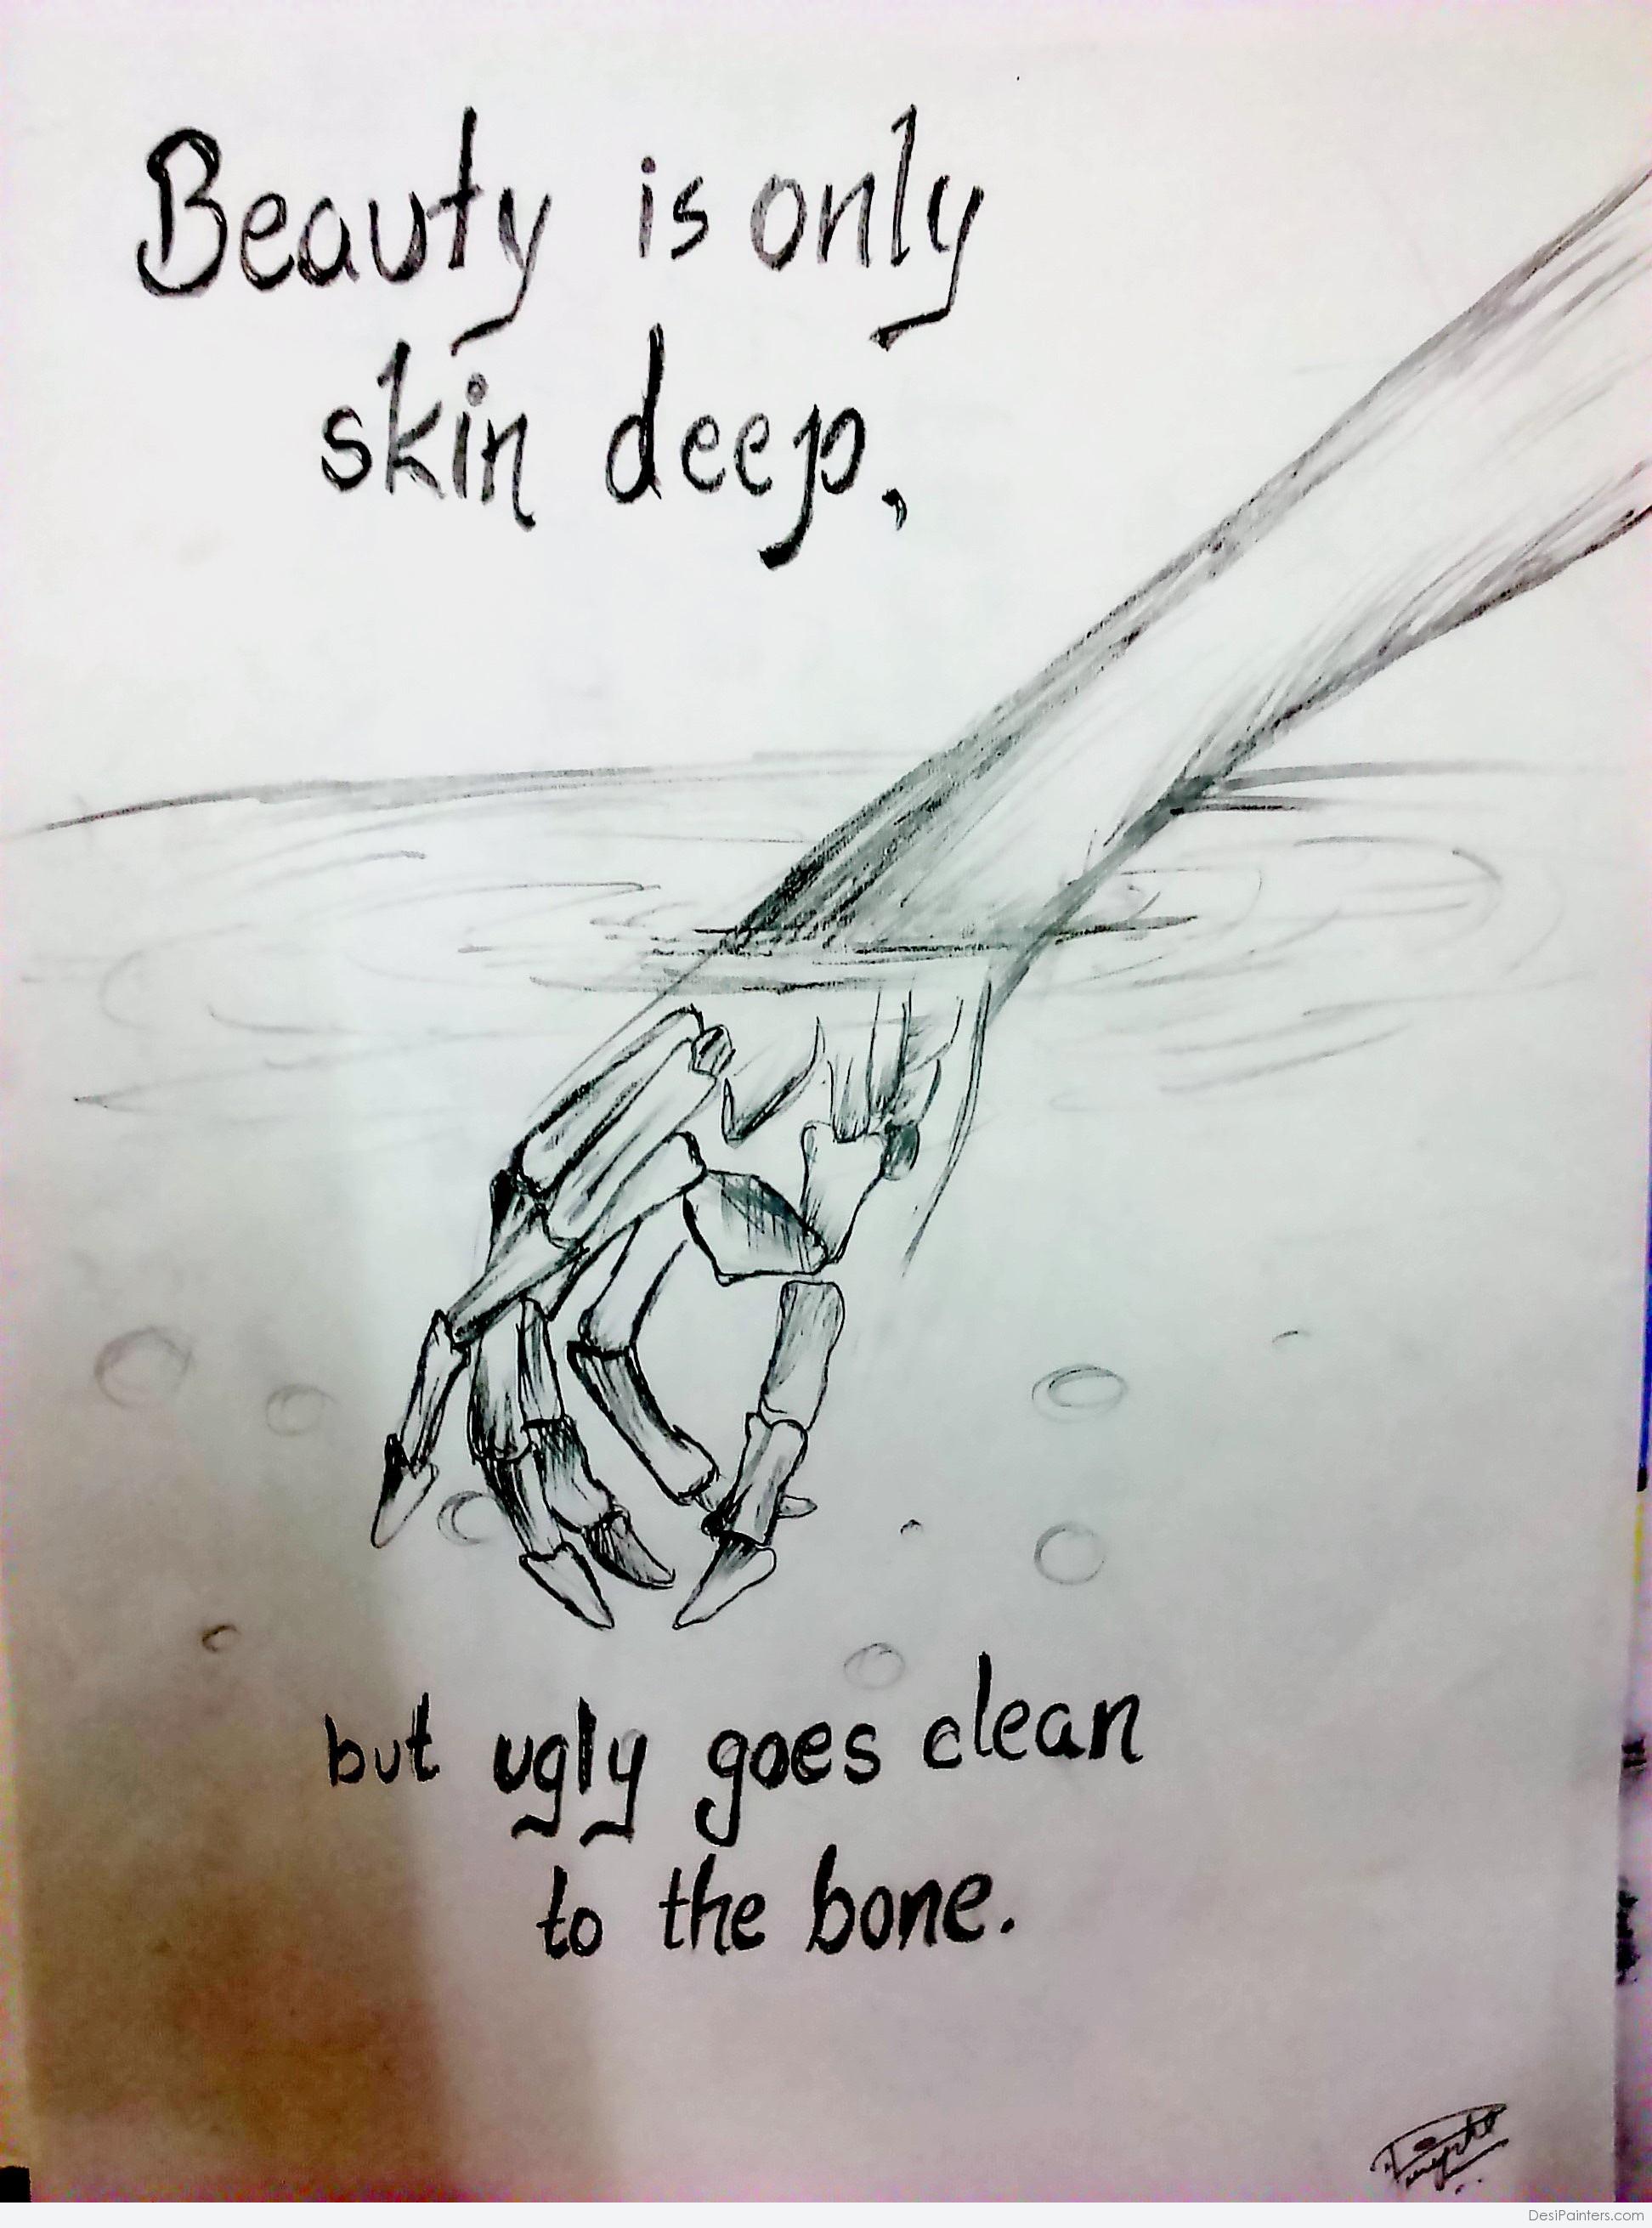 Beauty is only
skin deep,
but ugly goes clean
to the bone.
DesiPainters.com